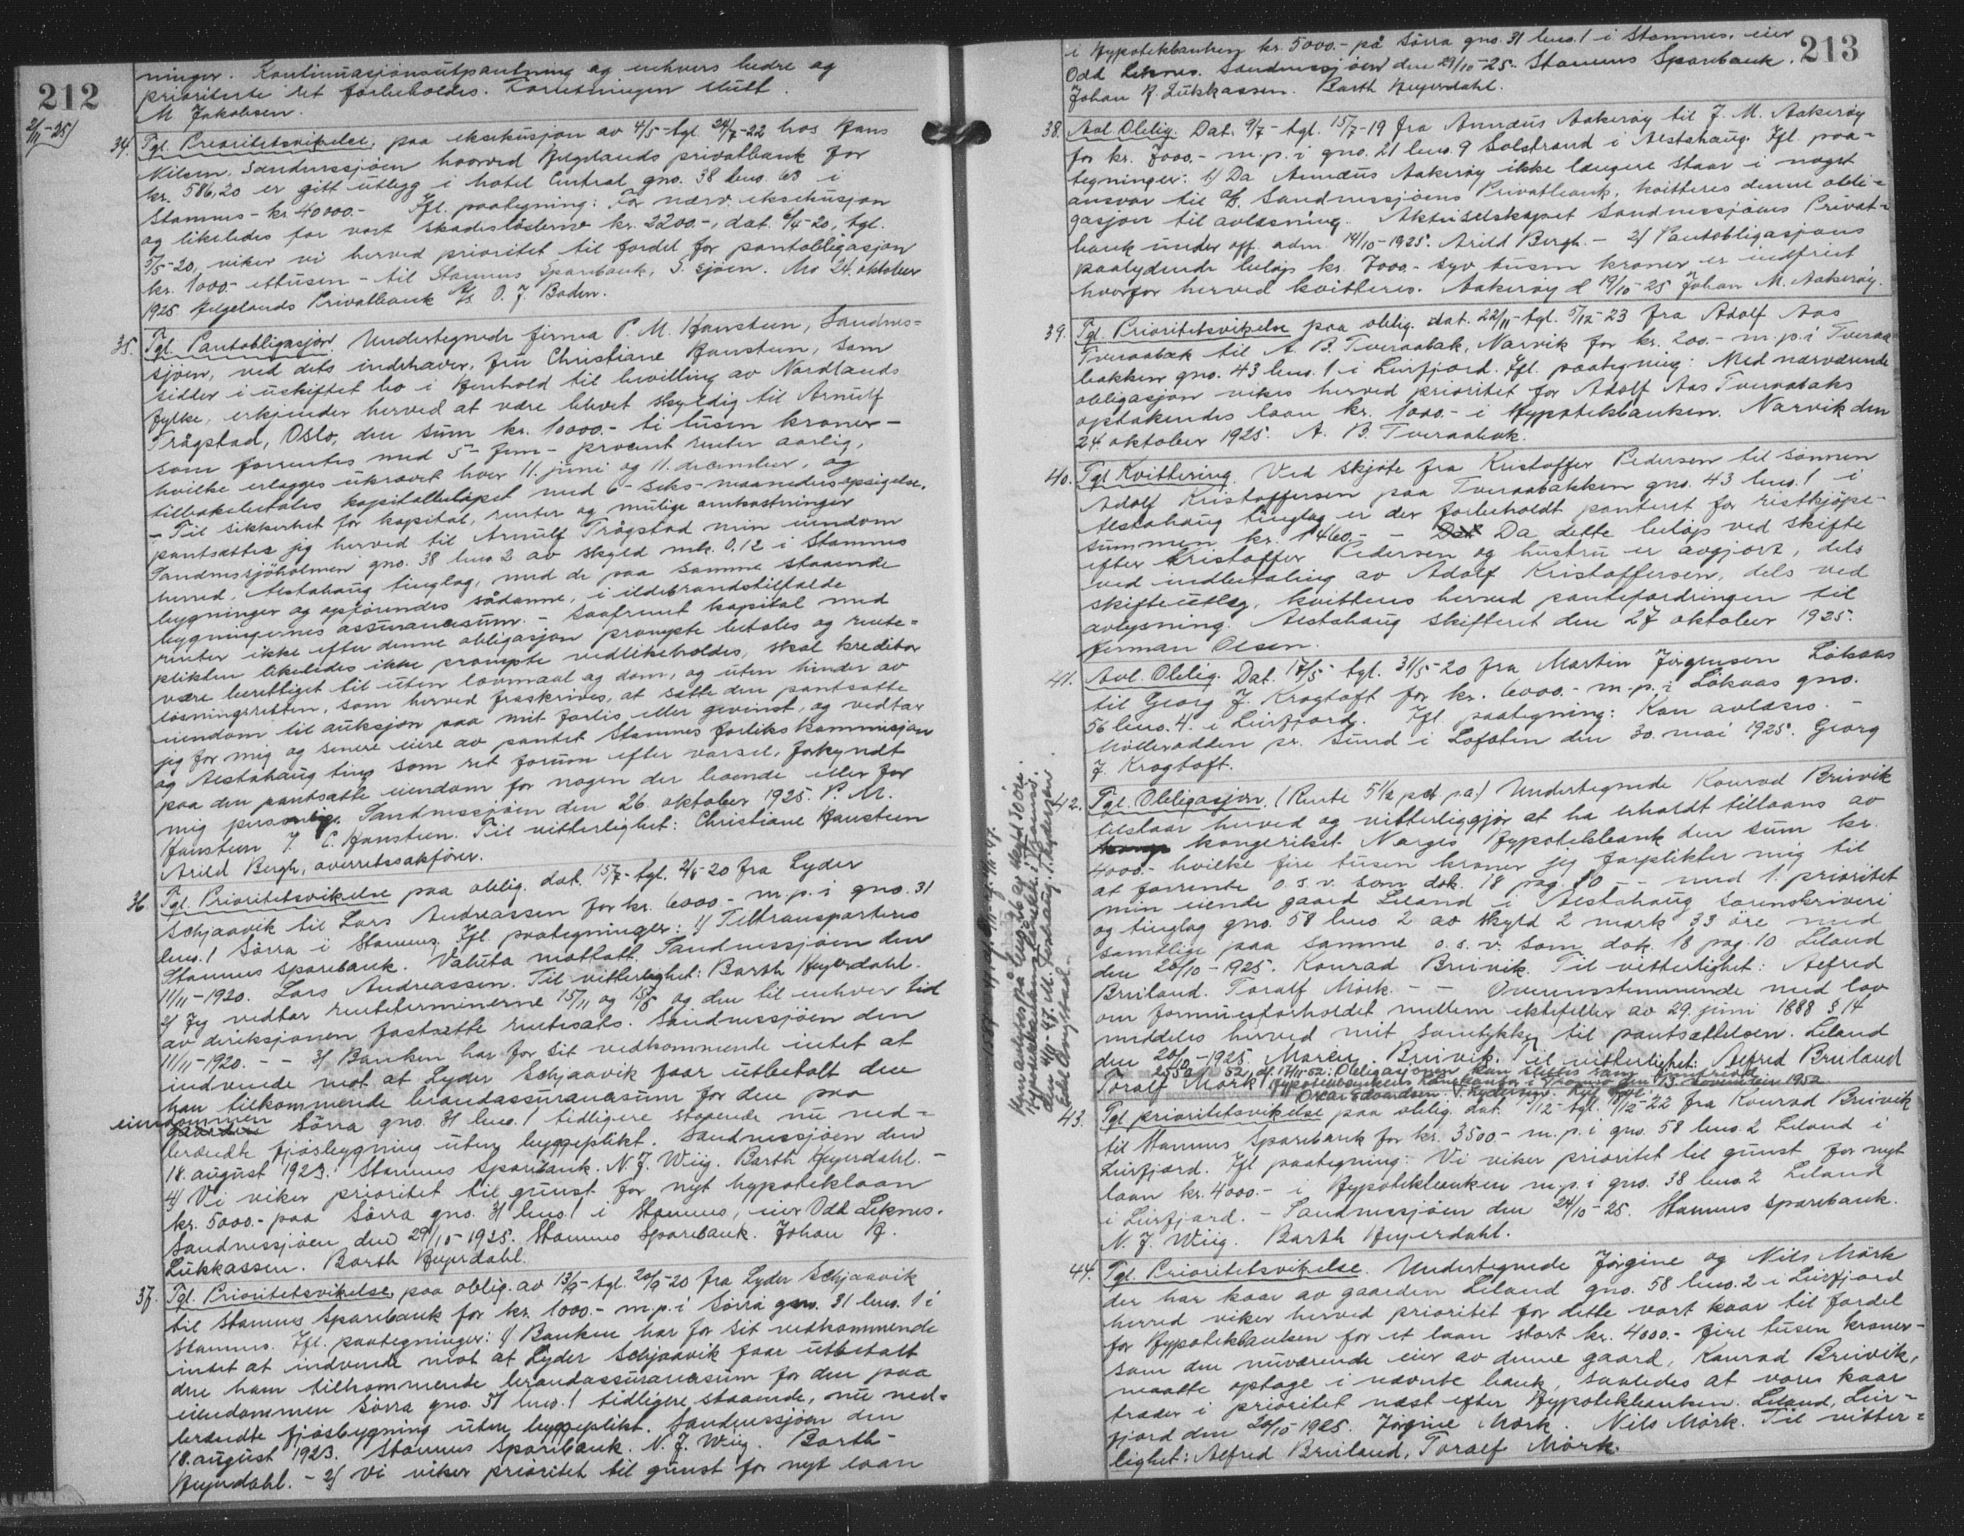 212
2/11-25
ninger. Kontinuasjonsutpantning og enhvers bedre og
prioriterte ret forbeholdes. Forretningen slutt.
M Jakobsen.
34. Tgl. Prioritetsvikelse, paa eksekusjon av 4/5-tgl. 24/7-22 hos Hans
Nilsen, Sandnessjøen hvorved Helgelands privatbank for
kr. 586,20 er gitt utlegg i hotel Central gno. 38 bno. 63 i
Stamnes - kr. 40000.- Ifl. paategning: For nærv. eksekusjon
og likeledes for vort skadesløsbrev kr. 2200.-, dat. /4-20, tgl.
3/5-20, viker vi herved prioritet til fordel for pantobligasjon
kr. 1000.- ettusen - til Stamnes Sparebank, S. sjøen. Mo 24. oktober
1925 Helgelands Privatbank A/s O. J. Boden.
35. Tgl. Pantobligasjon. Undertegnede firma P. M. Hansteen, Sandnes=
sjøen, ved dets indehaver, fru Christiane Hansteen, som
sidter i uskiftet bo i Henhold til bevilling av Nordlands
fylke, erkjender herved at være blevet skyldig til Arnulf
Trågstad, Oslo, den sum kr. 10000.- ti tusen kroner -
som forrentes med 5- fem - procent renter aarlig,
hvilke erlægges ukrævet hver 11. juni og 11. december, og
tilbakebetales kapitalbeløpet med 6 - seks - maaneders opsigelse.
- Til sikkerhet for kapital, renter og mulige omkostninger
pantsættes jeg herved til Arnulf Trågstad min eiendom
Sandnessjöholmen gno. 38 bno 2 av skyld mk. 0.12 i Stamnes
herred, Alstahaug tinglag, med de paa samme staaende
bygninger og opförendes sådanne, i ildebrandstilfælde
bygningernes assurancesum. - Saafremt kapital med
renter ikke efter denne obligasjon prompte betales og rente=
plikten likeledes ikke prompte vedlikeholdes, skal kreditor
være berettiget til uten lovmaal og dom, og uten hinder av
løsningsretten, som herved fraskrives, at sætte den pantsatte
eiendom til auksjon paa mit forlis eller gevinst, og vedtar
jeg for mig og senere eiere av pantet Stamnes forlikskommisjon
og Alstahaug ting som ret forum efter varsel, forkyndt
paa den pantsatte eiendom for nogen der boende eller for
mig personlig. Sandnessjøen den 26. oktober 1925. P. M.
Hansteen J. C. Hansteen. Til vitterlighet: Christiane Hansteen
Arild Bergh, overretssakfører.
36. Tgl. Prioritetsvikelse paa oblig. dat. 15/7-tgl. 2/8-20 fra Lyder
Schjaavik til Lars Andreassen for kr. 6000.- m.p. i gno. 31
bno. 1 Sörra i Stamnes. Ifl. paategninger: 1/ Tiltransporteres
Stamnes Sparebank. Valuta mottatt. Sandnessjøen den
11/11-1920. Lars Andreassen. Til vitterlighet: Barth Heyerdahl.
2/ Jeg vedtar renteterminerne 15/11 og 15/5 og den til enhver tid
av direksjonen fastsatte rentesats. Sandnessjøen den
11/11-1920. - - 3/ Banken har for sit vedkommende intet at
indvende mot at Lyder Schjaavik faar utbetalt den
ham tilkommende brandassurancesum for den paa
eiendommen Sörra gno. 31 bno. 1 tidligere staaende nu ned=
brændte fjösbygning uten byggeplikt. Sandnessjøen den
18. august 1923. Stamnes Sparebank. N. J. Wiig. Barth Heyerdahl. -
4/ Vi viker prioritet til gunst for nyt hypoteklaan
kr. 5000.- paa Sörra gno. 31 bno. 1 i Stamnes, eier Odd Leknes.
Sandnessjøen den 29/10-1925. Stamnes Sparebank. Johan R.
Lukkassen. Barth Heyerdahl.
37. Tgl. Prioritetsvikelse, paa oblig. av 13/9-tgl. 20/9-20 fra Lyder Schjaavik
til Stamnes Sparebank for kr. 1000.- m.p. i Sörra gno. 31 bno. 1 i
Stamnes. Ifl. paategninger: 1/ Banken har for sit vedkommende
intet at indvende mot at Lyder Schjaavik faar utbetalt
den ham tilkommende brandassurancesum for den paa
eiendommen Sörra gno. 31 bno. 1 tidligere staaende, nu ned=
brændte fjösbygning uten byggeplikt. Sandnessjøen den
18. august 1923. Stamnes Sparebank. N. J. Wiig. Barth
Heyerdahl. - 2/ Vi viker prioritet til gunst for nyt laan
213
i Hypotekbanken kr. 5000.- på Sörra gno. 31 bno. 1 i Stamnes, eier
Odd Leknes. Sandnessjøen den 29/10-25. Stamnes Sparebank.
Johan R. Lukkassen. Barth Heyerdahl.
38. Avl. Oblig. Dat. 9/7-tgl. 15/7-19 fra Annæus Aakerøy til J. M. Aakerøy
for kr. 7000.- m.p. i gno. 21 bno. 9 Solstrand i Alstahaug. Ifl. paa=
tegninger: 1/ Da Annæus Aakerøy ikke længere staar i noget
ansvar til A/S. Sandnessjøens Privatbank, kvitteres denne obli=
gasjon til avlæsning. Aktieselskapet Sandnessjøens Privat=
bank under off. adm. 14/10-1925. Arild Bergh. - 2/ Pantobligasjons
paalydende beløp kr. 7000.- syv tusen kroner er indfriet
hvorfor herved kvitteres. Aakerøy d. 19/10-25 Johan M. Aakerøy.
39. Tgl. Prioritetsvikelse paa oblig. dat. 22/11-tgl. 5/12-23 fra Adolf Aas
Tveraabak til A. B. Tveraabak, Narvik for kr. 200.- m.p. i Tveraa=
bakken gno. 43 bno. 1 i Leirfjord. Ifl. paategning: Med nærværende
obligasjon vikes herved prioritet for Adolf Aas Tveraabaks
optakendes laan kr. 1000.- i Hypotekbanken. Narvik den
24. oktober 1925. A. B. Tveraabak.
40. Tgl Kvittering. Ved skjøte fra Kristoffer Pedersen til sønnen
Adolf Kristoffersen paa Tveraabakken gno. 43 bno. 1 i
Alstahaug tinglag er der forbeholdt panteret for restkjøpe=
summen kr. 1460.- - Da dette beløp ved skifte
efter Kristoffer Pedersen og hustru er avgjort, dels
ved indbetaling av Adolf Kristoffersen, dels ved
skifteutlæg, kvitteres herved pantefordringen til
avlysning. Alstahaug skifteret den 27 oktober 1925.
Herman Olsen.
41. Avl. Oblig. Dat. 18/5 tgl. 31/5-20 fra Martin Jörgensen Løkaas
til Georg J. Krogtoft for kr. 6000.- m.p. i Løkaas gno.
56 bno. 4. i Leirfjord. Ifl. paategning: Kan avlæses. -
Mölleroddden pr. Sund i Lofoten den 30. mai 1925. Georg
J. Krogtoft.
42. Tgl. Obligasjon. (Rente 5 1/2 pct pa.) Undertegnede Konrad Breivik
tilstaar herved og vitterliggjør at ha erholdt tillaans av
kongeriket Norges Hypotekbank den sum kr.
4000.- hvilke fire tusen kroner jeg forplikter mig til
at forrente o.s.v. som dok. 18 pag. 10 - - med 1. prioritet
min eiende gaard Leland i Alstahaug sorenskriveri
og tinglag gno. 58 bno 2 av skyld 2 mark 33 öre med
samtlige paa samme o.s.v. som dok. 18 pag. 10 Leland
den 20/10-1925. Konrad Breivik. Til vitterlighet: Alfred
Breiland. Toralf Mörk. - - Overensstemmende med lov
om formuesforholdet mellem ektefeller av 29. juni 1888 § 14
meddeles herved mit samtykke til pantsættelsen. Leland
den 20/10-1925. Maren Breivik. Til vitterlighet: Alfred Breiland
Toralf Mörk
43. Tgl prioritetsvikelse paa oblig. dat. /12-tgl. 18/12-22 fra Konrad Breivik
til Stamnes Sparebank for kr. 3500.- m.p. i gno. 58 bno. 2 Leland i
Leirfjord. Ifl paategning: Vi viker prioritet til gunst for nyt
laan kr. 4000.- i Hypotekbanken m.p. i gno. 38 bno. 2 Leland
i Leirfjord. - Sandnessjøen den 24/10-25. Stamnes Sparebank.
N. J. Wiig. Barth Heyerdahl.
44. Tgl. Prioritetsvikelse. Undertegnede Jörgine og Nils Mörk
der har kaar av gaarden Leland gno. 58 bno. 2 i Leirfjord
herred viker herved prioritet for dette vort kaar til fordel
for Hypotekbanken for et laan stort kr. 4000.- fire tusen kroner -
som den nuværende eier av denne gaard, Konrad Breivik,
maatte optage i nævnte bank, saaledes at vores kaar
træder i prioritet næst efter Hypotekbanken. Leland, Leir=
fjord den 20/10 1925. Jörgine Mörk. Nils Mörk. Til vitter=
lighet: Alfred Breiland, Toralf Mörk.